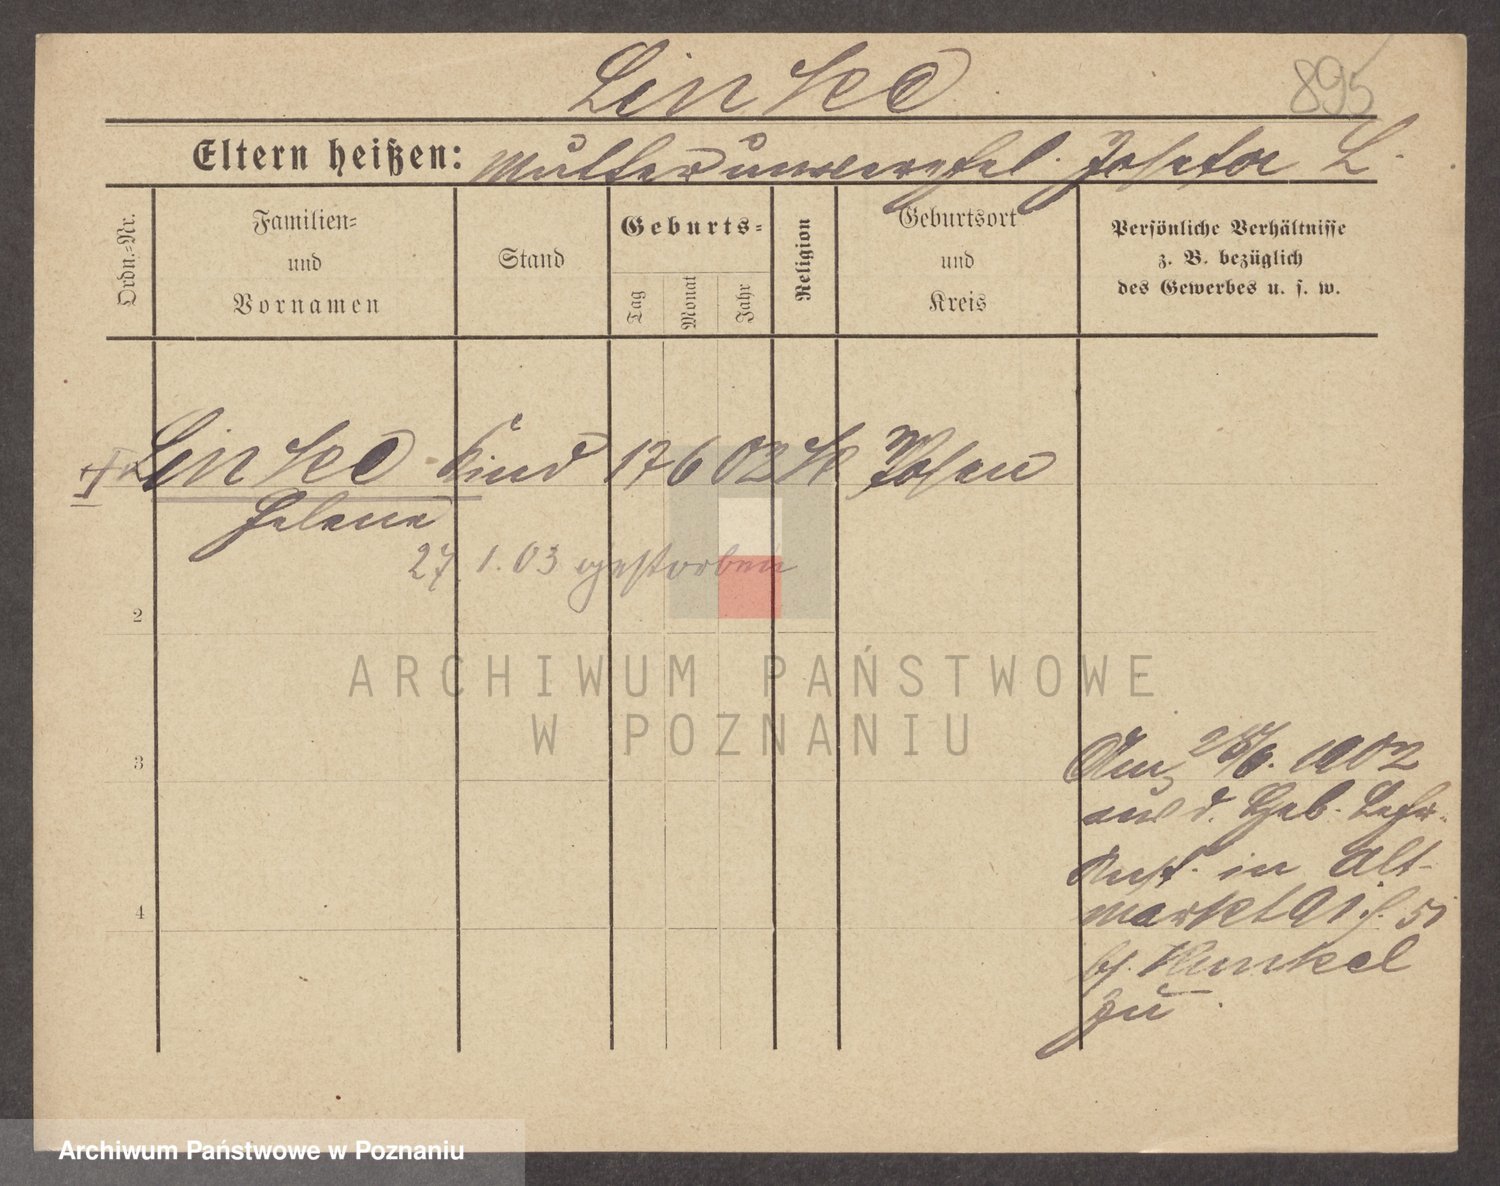 Linke
895
Eltern heißen: Mutter unverehel. Josefa L.
Ordn.=Nr.
Familien=
und
Vornamen
Stand
Geburts=
Tag
Monat
Jahr
Religion
Geburtsort
und
Kreis
Persönliche Verhältnisse
z. B. bezüglich
des Gewerbes u. s. w.
Linke Kind 17 6 02 K Posen
Helene
27. 1. 03 gestorben
2
3
4
Am 28/6. 1902
aus d. Heb. Lehr-
Anst. in Alt-
markt 91 f. 51
bs. Kunkel
zu.
ARCHIWUM PAŃSTWOWE
W POZNANIU
Archiwum Państwowe w Poznaniu